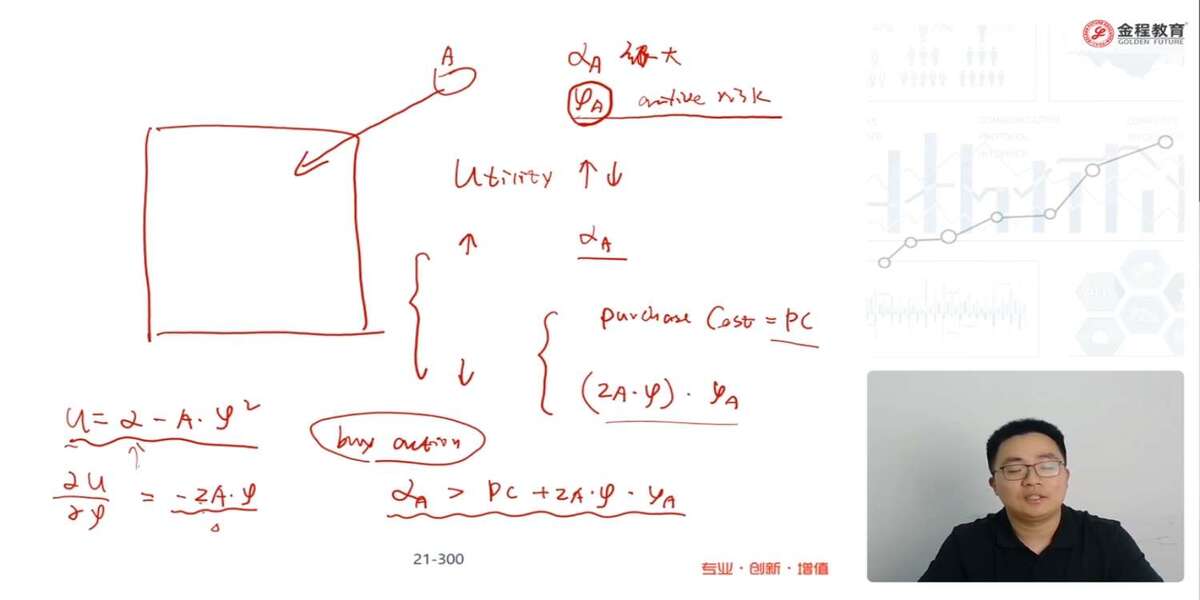 金程教育
GOLDEN FUTURE
A
αA 很大
φA active risk
Utility ↑↓
↑ αA
Purchase Cost = PC
↓ (2A·φ)·φA
U = α − A·φ²
buy action
∂U/∂φ = −2A·φ
αA > PC + 2A·φ·φA
21-300
专业·创新·增值